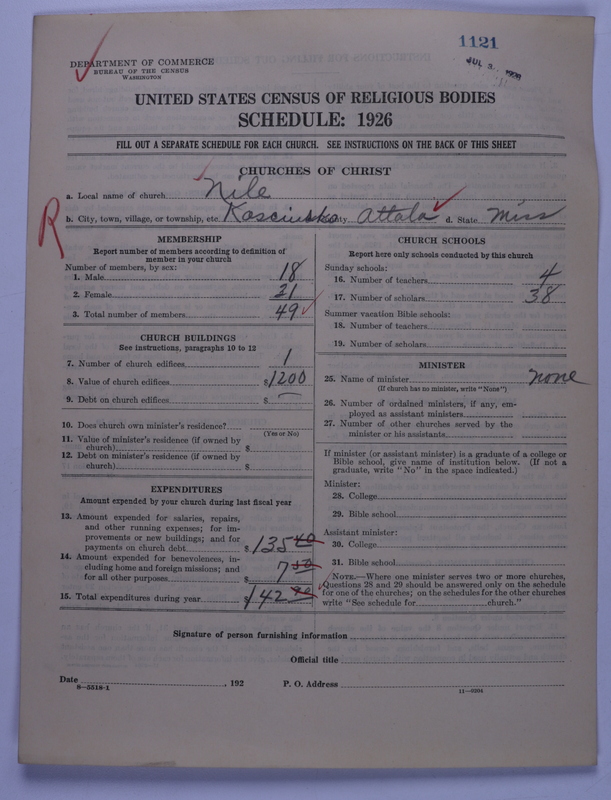 1121
JUL 3 1928
DEPARTMENT OF COMMERCE
BUREAU OF THE CENSUS
WASHINGTON
UNITED STATES CENSUS OF RELIGIOUS BODIES
SCHEDULE: 1926
FILL OUT A SEPARATE SCHEDULE FOR EACH CHURCH. SEE INSTRUCTIONS ON THE BACK OF THIS SHEET
CHURCHES OF CHRIST
a. Local name of church Nile
b. City, town, village, or township, etc. Kosciusko County Attala d. State Miss
R
MEMBERSHIP
Report number of members according to definition of
member in your church
Number of members, by sex:
1. Male 18
2. Female 31
3. Total number of members 49
CHURCH BUILDINGS
See instructions, paragraphs 10 to 12
7. Number of church edifices 1
8. Value of church edifices $1200
9. Debt on church edifices $ —
10. Does church own minister's residence?
(Yes or No)
11. Value of minister's residence (if owned by
church) $
12. Debt on minister's residence (if owned by
church) $
EXPENDITURES
Amount expended by your church during last fiscal year
13. Amount expended for salaries, repairs,
and other running expenses; for im-
provements or new buildings; and for
payments on church debt $135 40
14. Amount expended for benevolences, in-
cluding home and foreign missions; and
for all other purposes 7 50
15. Total expenditures during year $142 90
CHURCH SCHOOLS
Report here only schools conducted by this church
Sunday schools:
16. Number of teachers 4
17. Number of scholars 38
Summer vacation Bible schools:
18. Number of teachers
19. Number of scholars
MINISTER
25. Name of minister none
(If church has no minister, write "None")
26. Number of ordained ministers, if any, em-
ployed as assistant ministers
27. Number of other churches served by the
minister or his assistants
If minister (or assistant minister) is a graduate of a college or
Bible school, give name of institution below. (If not a
graduate, write "No" in the space indicated.)
Minister:
28. College
29. Bible school
Assistant minister:
30. College
31. Bible school
NOTE.—Where one minister serves two or more churches,
Questions 28 and 29 should be answered only on the schedule
for one of the churches; on the schedules for the other churches
write "See schedule for church."
Signature of person furnishing information
Official title
Date , 192 P. O. Address
8—5518-1
11—9204